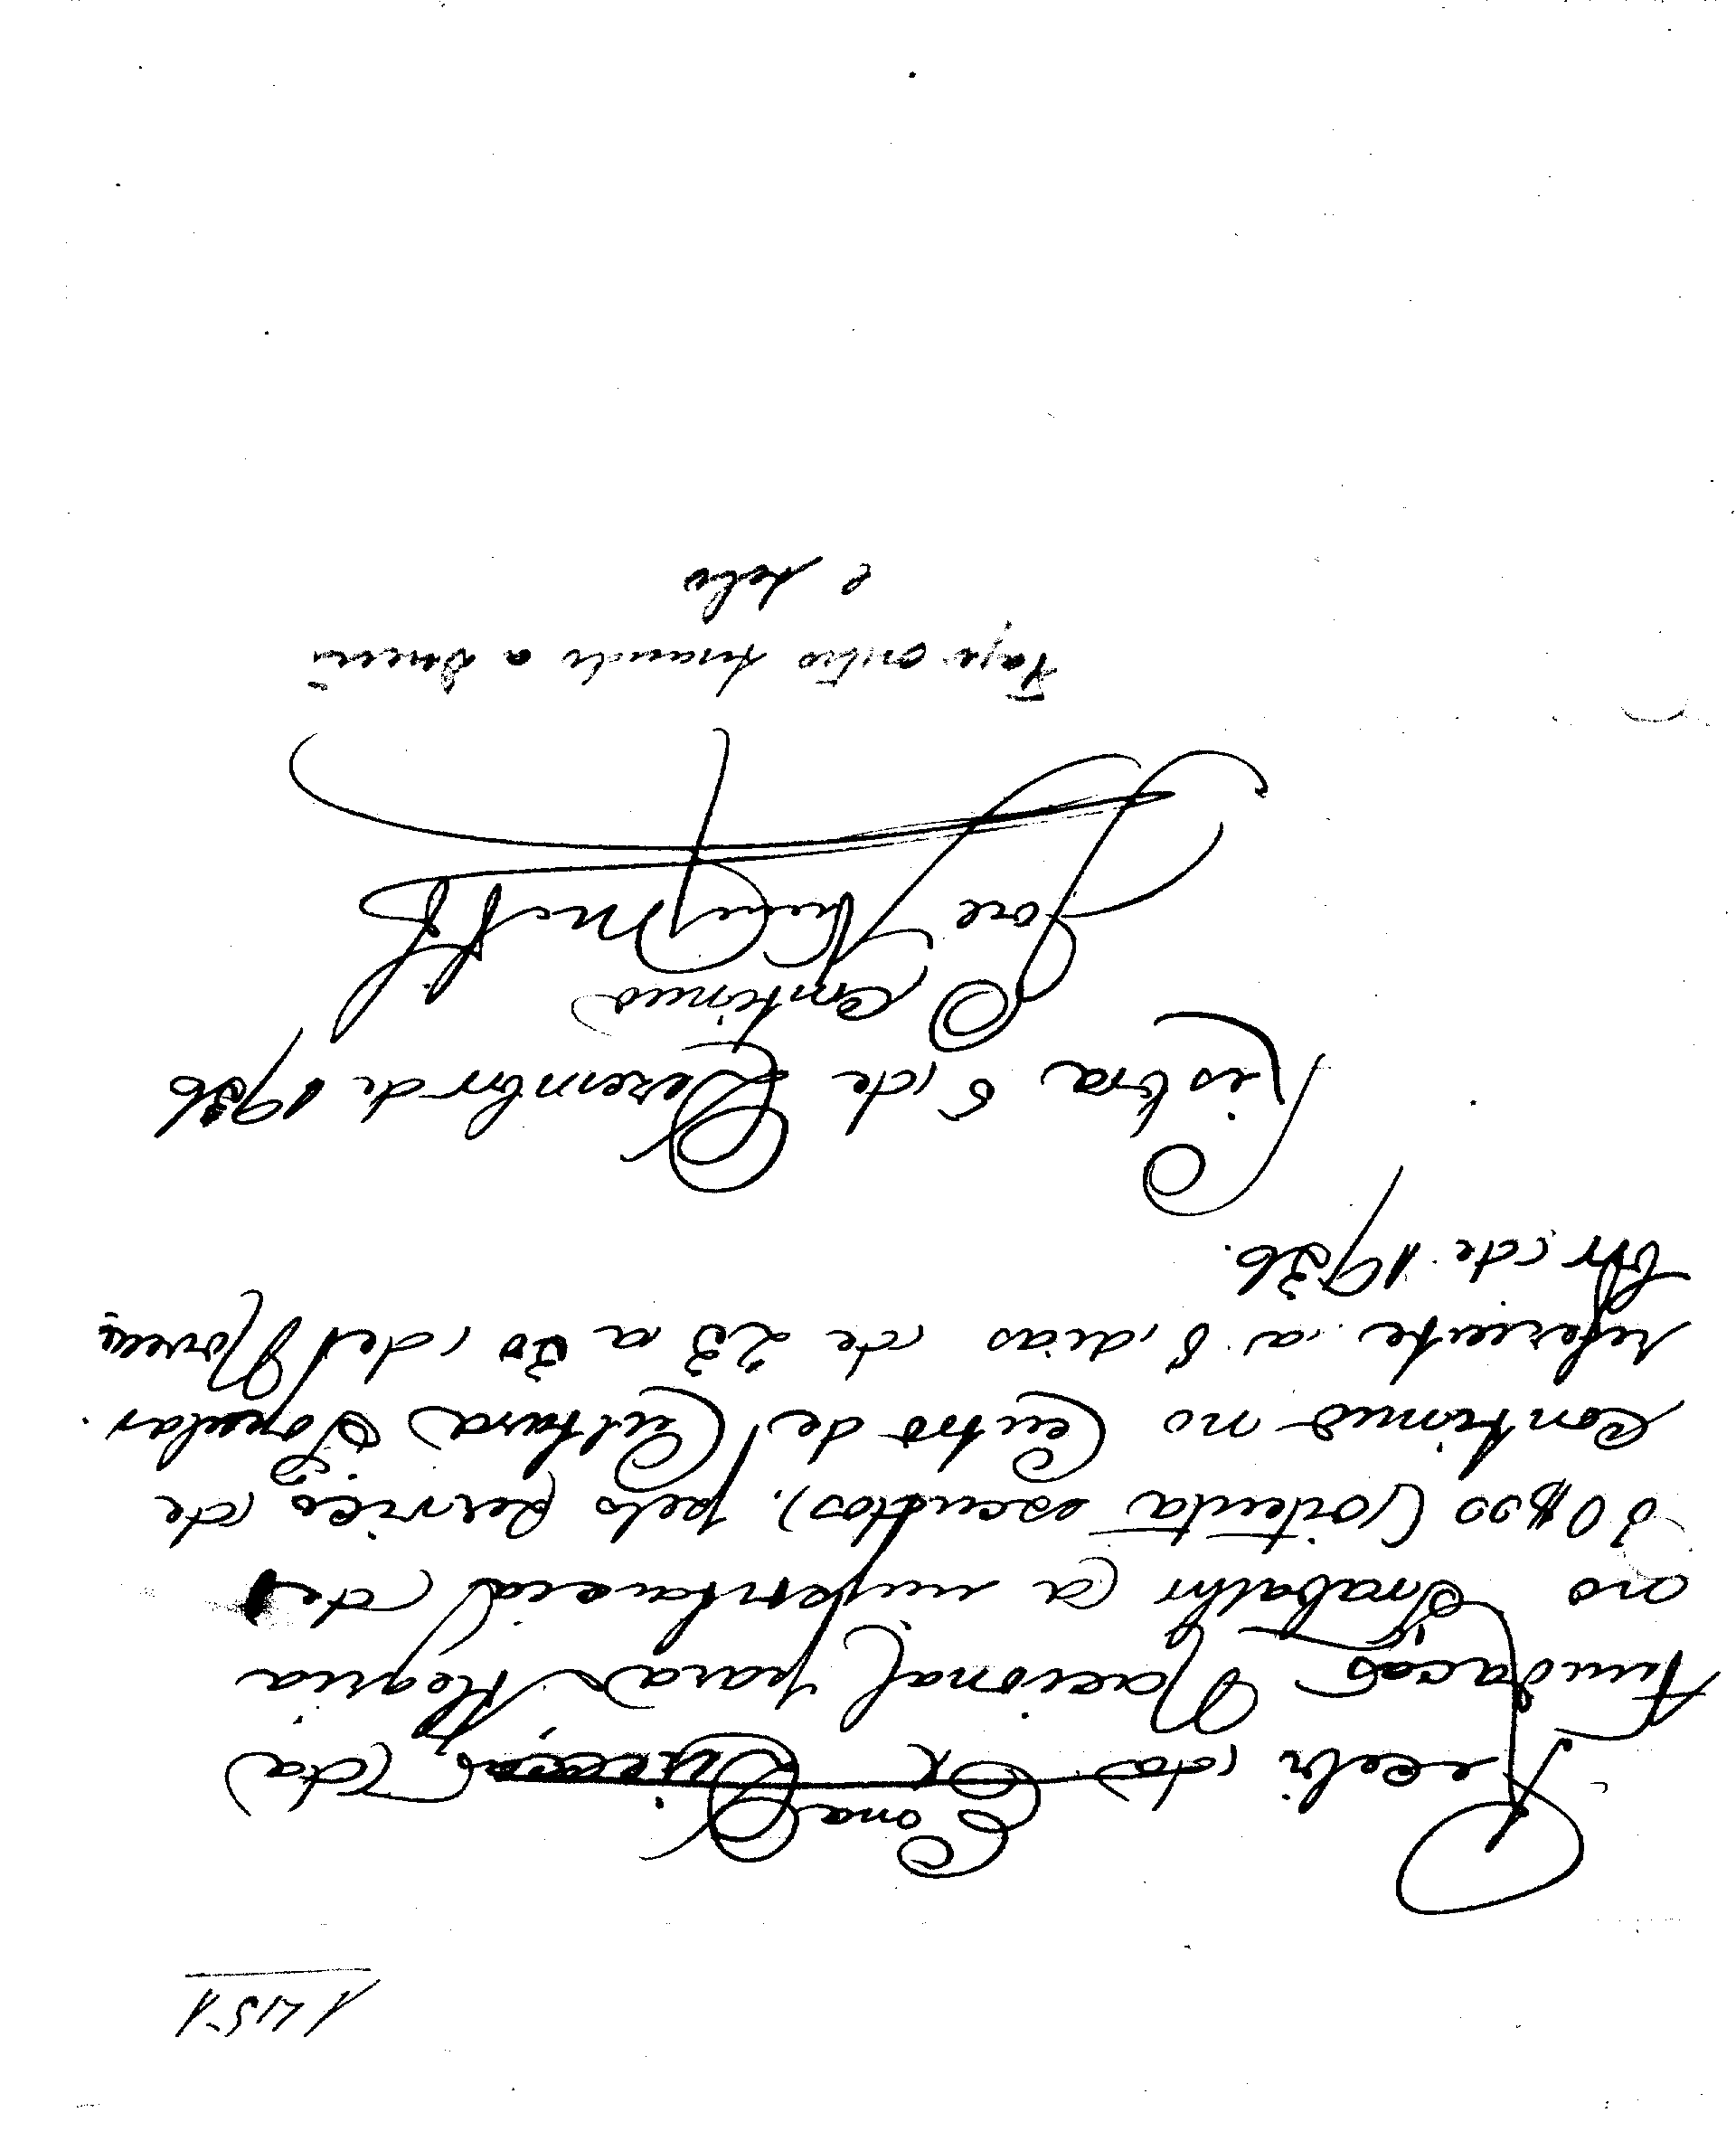 1451
Recebi da Exma Direcção da
Fundação Nacional para Alegria
no Trabalho a importancia de
80$00 (oitenta escudos). pelo serviço de
continuo no Centro de Cultura Popular
referente a 8 dias de 23 a 30 de Novem
bro de 1936.
Lisboa 5 de Dezembro de 1936
O continuo
José
e selo